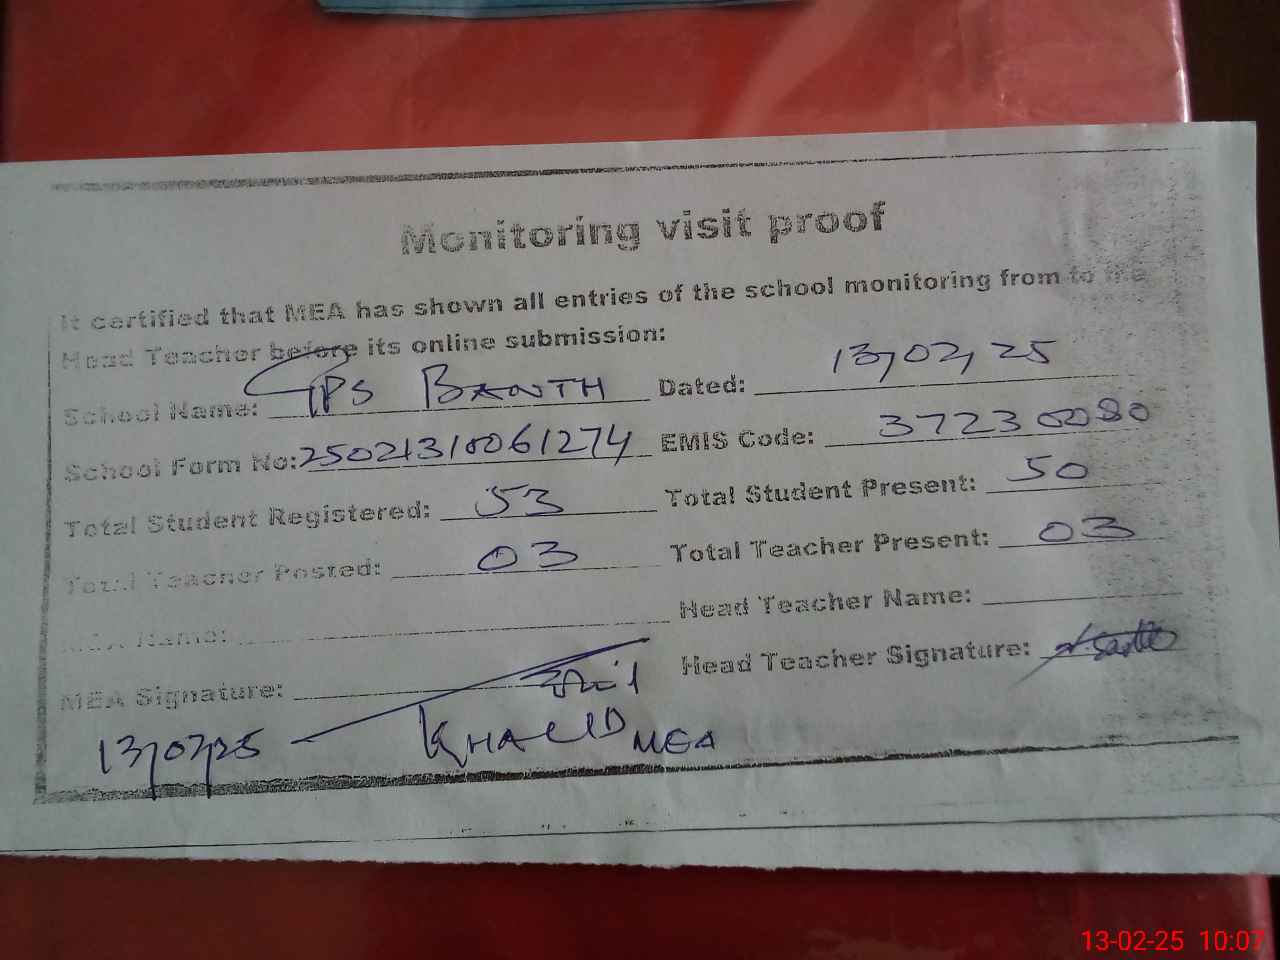 Monitoring visit proof
It certified that MEA has shown all entries of the school monitoring from to the
Head Teacher before its online submission:
School Name: GPS BANTH Dated: 13/02/25
School Form No: 25021310061274 EMIS Code: 37230080
Total Student Registered: 53 Total Student Present: 50
Total Teacher Posted: 03 Total Teacher Present: 03
MEA Name: Head Teacher Name:
MEA Signature: Head Teacher Signature:
13/02/25 KHALID MEA
13-02-25 10:07